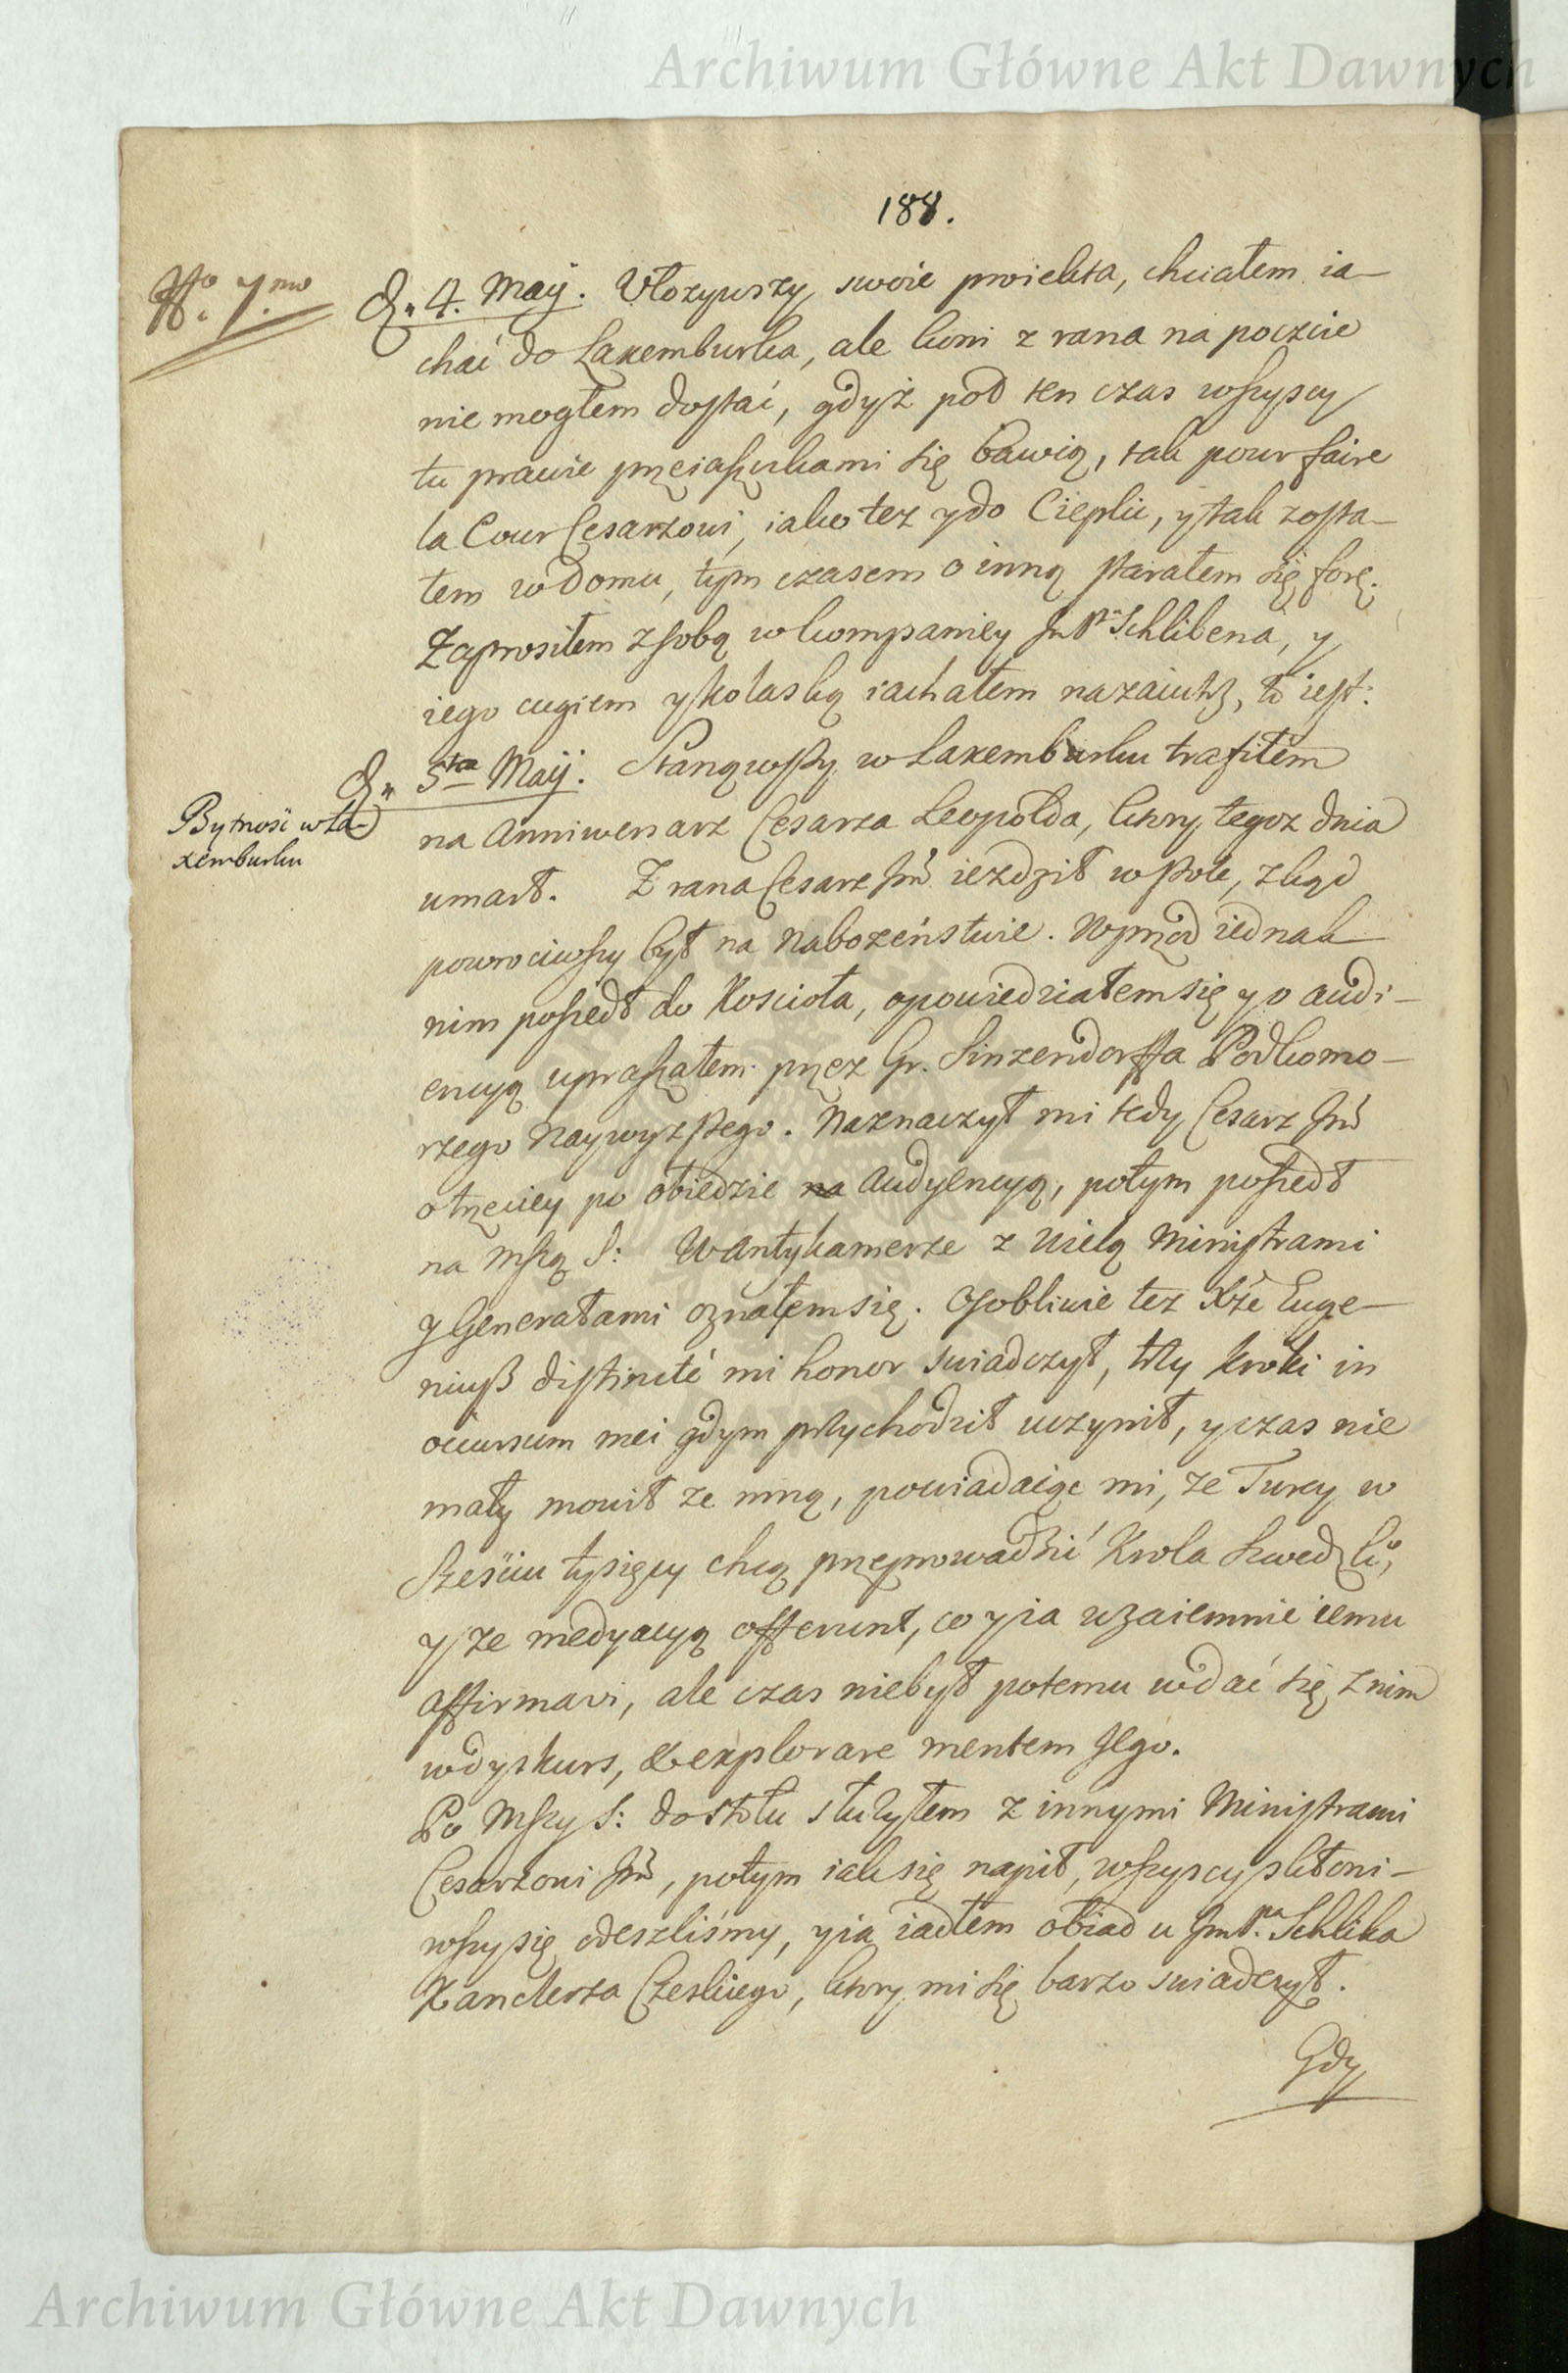 Archiwum Główne Akt Dawnych
188.
No. 7mo
D. 4. Maij. Ułozywszy swoie proiekta, chciałem ia-
chać do Laxemburka, ale koni z rana na poczcie
nie mogłem dostać, gdyż pod ten czas wszyscy
tu prawie przeiaszczkami się bawią, tak pour faire
la Cour Cesarzowi, iako tez y do Cieplic, y tak zosta-
łem w domu, tym czasem o inną starałem się forę.
Zaprosiłem z sobą w kompaniey JmPa Schlibena, y
iego cugiem y kolaską iachałem nazaiutrz, to iest:
D. 5ta Maij. Stanąwszy w Laxemburku trafiłem
Bytność w La-
xemburku
na Anniwersarz Cesarza Leopolda, ktory tegoz dnia
umarł. Z rana Cesarz Jm iezdził w pole, zkąd
powrociwszy był na Nabozeństwie. Wprzod iednak
nim poszedł do Kościoła, opowiedziałem się y o audi-
encyą upraszałem przez Gr. Sinzendorffa Podkomo-
rzego Naywyzszego. Naznaczył mi tedy Cesarz Jm
o trzeciey po obiedzie Audyencyą, potym poszedł
na Mszą S: W Antykamerze z wielą Ministrami
y Generałami oznałem się. Osobliwie tez Xże Euge-
niusz distincté mi honor swiadczył, trzy kroki in
occursum mei gdym przychodził uczynił, y czas nie
mały mowił ze mną, powiadaiąc mi, ze Turcy w
Sześciu tysięcy chcą przeprowadzić Krola Szwedzko,
y ze medyacyą offerunt, co y ia wzaiemnie iemu
affirmavi, ale czas niebył potemu wdać się z nim
w dyskurs, & explorare mentem Jego.
Po Mszy S: do stołu słuzyłem z innymi Ministrami
Cesarzowi Jm, potym iak się napił, wszyscy skłoni-
wszy się odeszliśmy, y ia iadłem obiad u JmPa. Schlika
Kanclerza Czeskiego, ktory mi się barzo swiadczył.
Gdy
Archiwum Główne Akt Dawnych